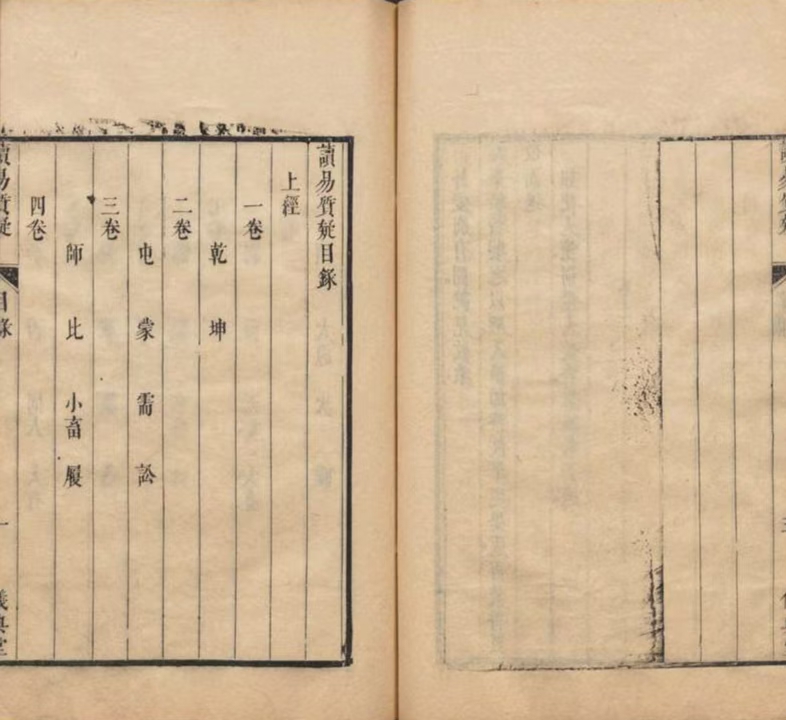 讀易質疑目錄
上經
一卷
乾 坤
二卷
屯 蒙 需 訟
三卷
師 比 小畜 履
四卷
讀易質疑 目錄 一